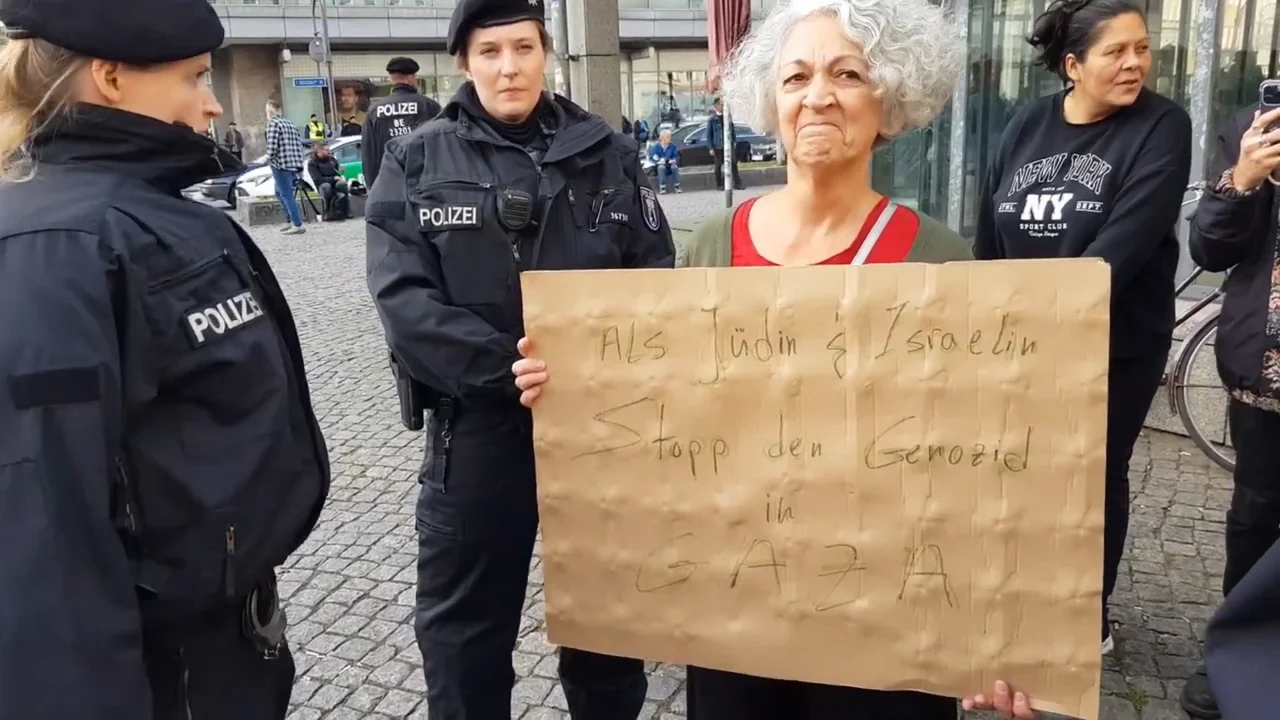 POLIZEI
BE
23201
POLIZEI
36730
POLIZEI
NEW YORK
ATHL. DEPT.
NY
SPORT CLUB
ALS Jüdin & Israelin
Stopp den Genozid
in
GAZA